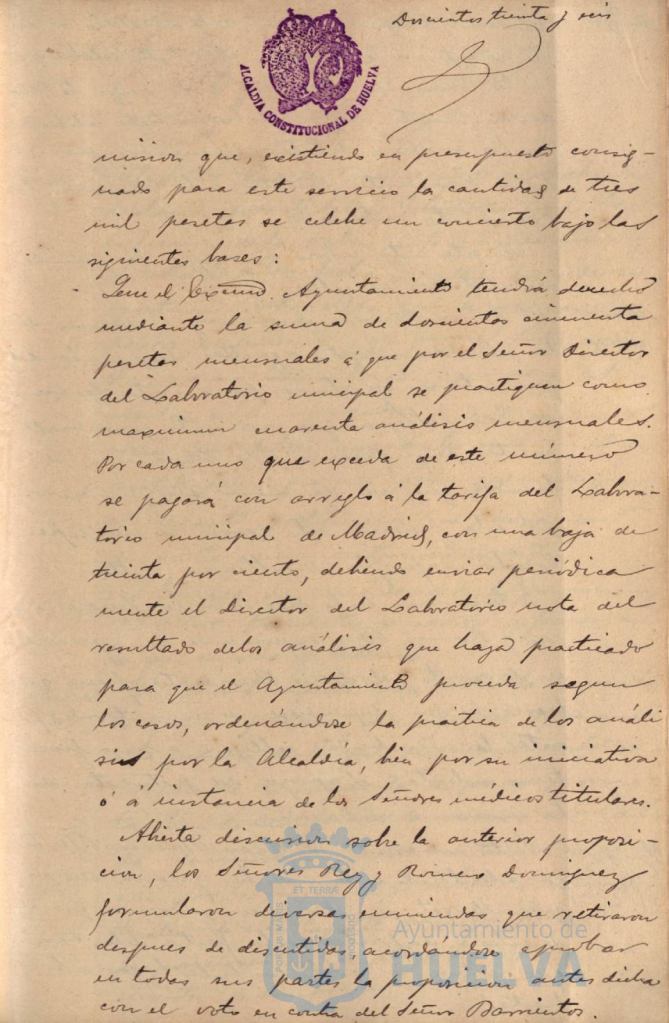 Doscientos treinta y seis
ALCALDIA CONSTITUCIONAL DE HUELVA
mision que, existiendo en presupuesto consig-
nado para este servicio la cantidad de tres
mil pesetas se celebre un concierto bajo las
siguientes bases:
Que el Excmo. Ayuntamiento tendrá derecho
mediante la suma de doscientos cincuenta
pesetas mensuales á que por el Señor Director
del Laboratorio municipal se practiquen como
maximun cuarenta análisis mensuales.
Por cada uno que exceda de este número
se pagará con arreglo á la tarifa del Labora-
torio municipal de Madrid, con una baja de
treinta por ciento, debiendo enviar periódica
mente el Director del Laboratorio nota del
resultado de los análisis que haya practicado
para que el Ayuntamiento proceda segun
los casos, ordenándose la práctica de los análi
sis por la Alcaldía, bien por su iniciativa
ó á instancia de los Señores médicos titulares.
Abierta discusion sobre la anterior proposi-
cion, los Señores Rey y Romero Dominguez
formularon diversas enmiendas que retiraron
despues de discutidas, acordándose aprobar
en todas sus partes la proposicion antes dicha
con el voto en contra del Señor Barrientos.
Ayuntamiento de
HUELVA